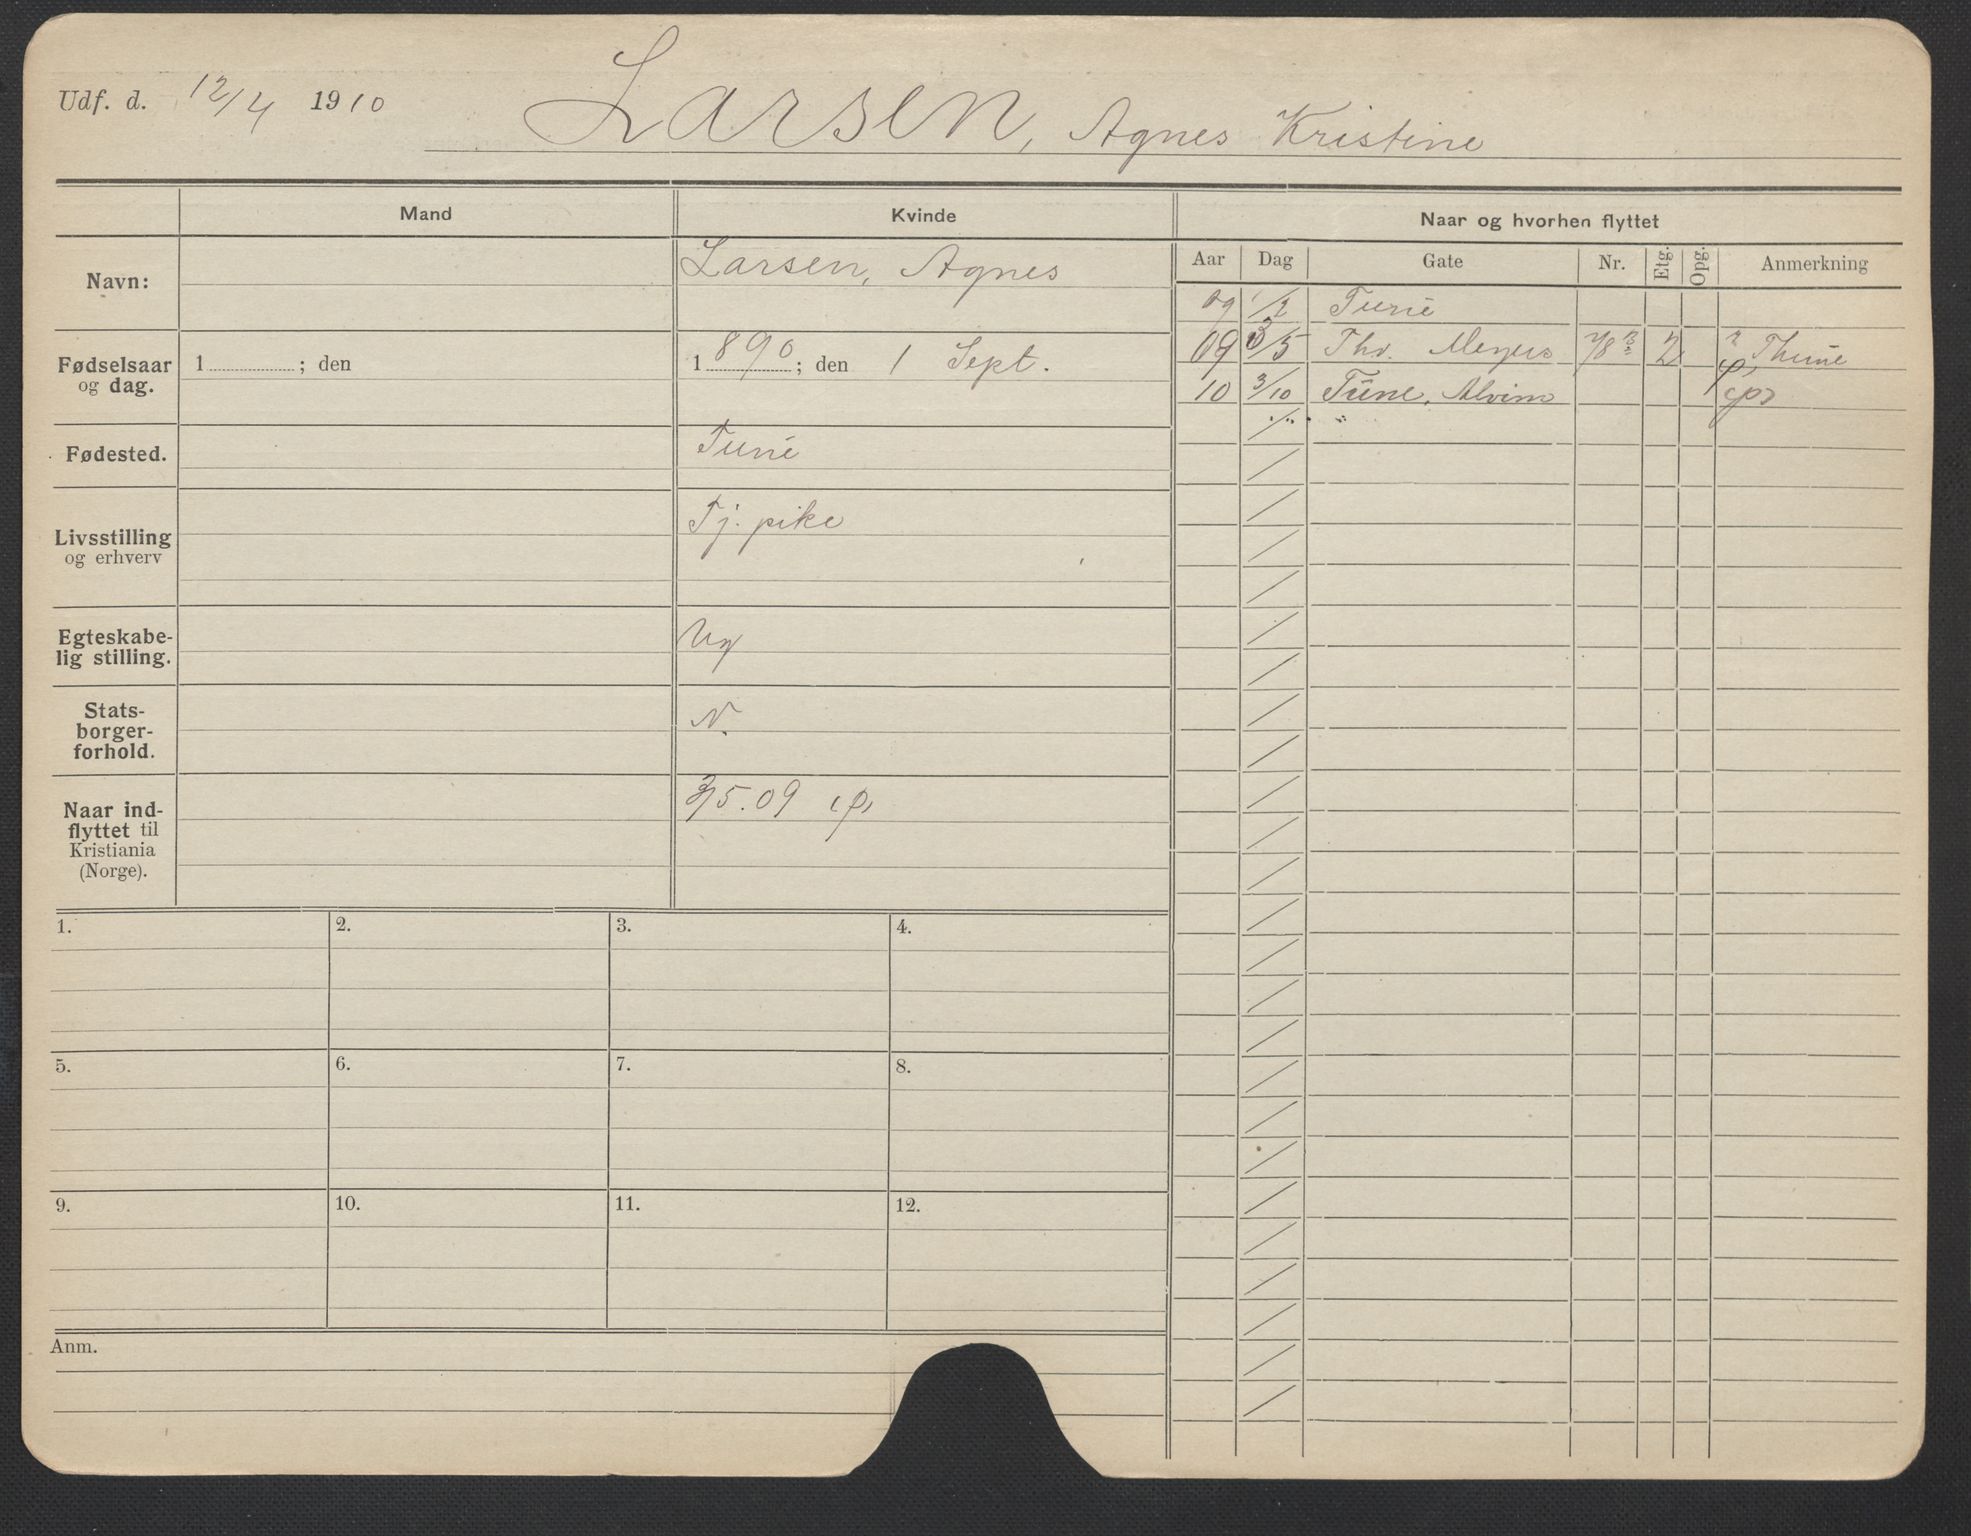 Udf. d. 12/4 1910 Larsen, Agnes Kristine
Mand Kvinde Naar og hvorhen flyttet
Aar Dag Gate Nr. Etg. Opg. Anmerkning
Navn: Larsen, Agnes
Fødselsaar og dag. 1 ; den 1890; den 1 Sept.
Fødested. Tune
Livsstilling og erhverv Tj. pike
Egteskabe-
lig stilling. Ug
Stats-
borger-
forhold. N.
Naar ind-
flyttet til
Kristiania
(Norge). 3/5.09
09 1/2 Tune
09 3/5 Thv. Meyers 78 2 Thune
10 3/10 Tune, Alvim
1. 2. 3. 4.
5. 6. 7. 8.
9. 10. 11. 12.
Anm.